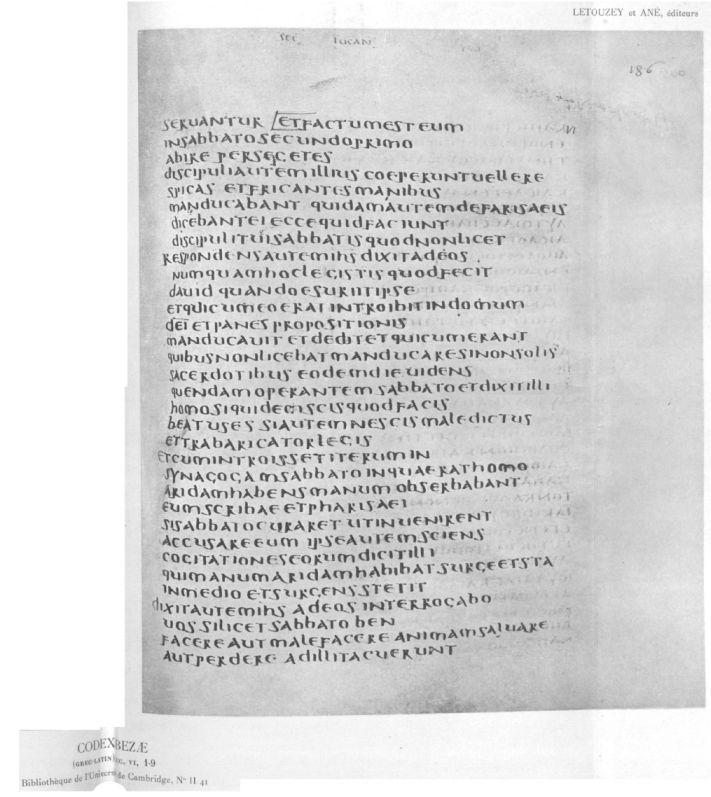 LETOUZEY et ANÉ, éditeurs
SEC LUCAN
186
SERUANTUR ETFACTUMESTEUM
INSABBATOSECUNDOPRIMO
ABIRE PERSEGETES
DISCIPULIAUTEMILLIUS COEPERUNTUELLERE
SPICAS ETFRICANTESMANIBUS
MANDUCABANT QUIDAMAUTEMDEFARISAEIS
DICEBANTEI ECCEQUIDFACIUNT
DISCIPULITUISABBATISQUODNONLICET
RESPONDENSAUTEMIHS DIXITADEOS
NUMQUAMHOCLEGISTISQUODFECIT
DAUID QUANDOESURITIPSE
ETQUICUMEOERAT INTROIBITINDOMUM
DEI ETPANES PROPOSITIONIS
MANDUCAUIT ETDEDITETQUICUMERANT
QUIBUSNONLICEBATMANDUCARESINONSOLIS
SACERDOTIBUS EODEMDIEUIDENS
QUENDAMOPERANTEMSABBATOETDIXITILLI
HOMOSIQUIDEMSCISQUODFACIS
BEATUSES SIAUTEMNESCISMALEDICTUS
ETTRABARICATORLEGIS
ETCUMINTROISSETITERUMIN
SYNAGOGAMSABBATOINQUAERATHOMO
ARIDAMHABENSMANUMOBSERBABANT
EUMSCRIBAEETPHARISAEI
SISABBATOCURARET UTINUENIRENT
ACCUSAREEUM IPSEAUTEMSCIENS
COGITATIONESEORUMDICITILLI
QUIMANUMARIDAMHABIBATSURGEETSTA
INMEDIO ETSURGENSSTETIT
DIXITAUTEMIHS ADEOS INTERROGABO
UOSSILICETSABBATO BEN
FACEREAUTMALEFACERE ANIMAMSALUARE
AUTPERDERE ADILLITACUERUNT
CODEX BEZÆ
(GREC-LATIN) VI, 1-9
Bibliothèque de l'Univers de Cambridge, N° II 41